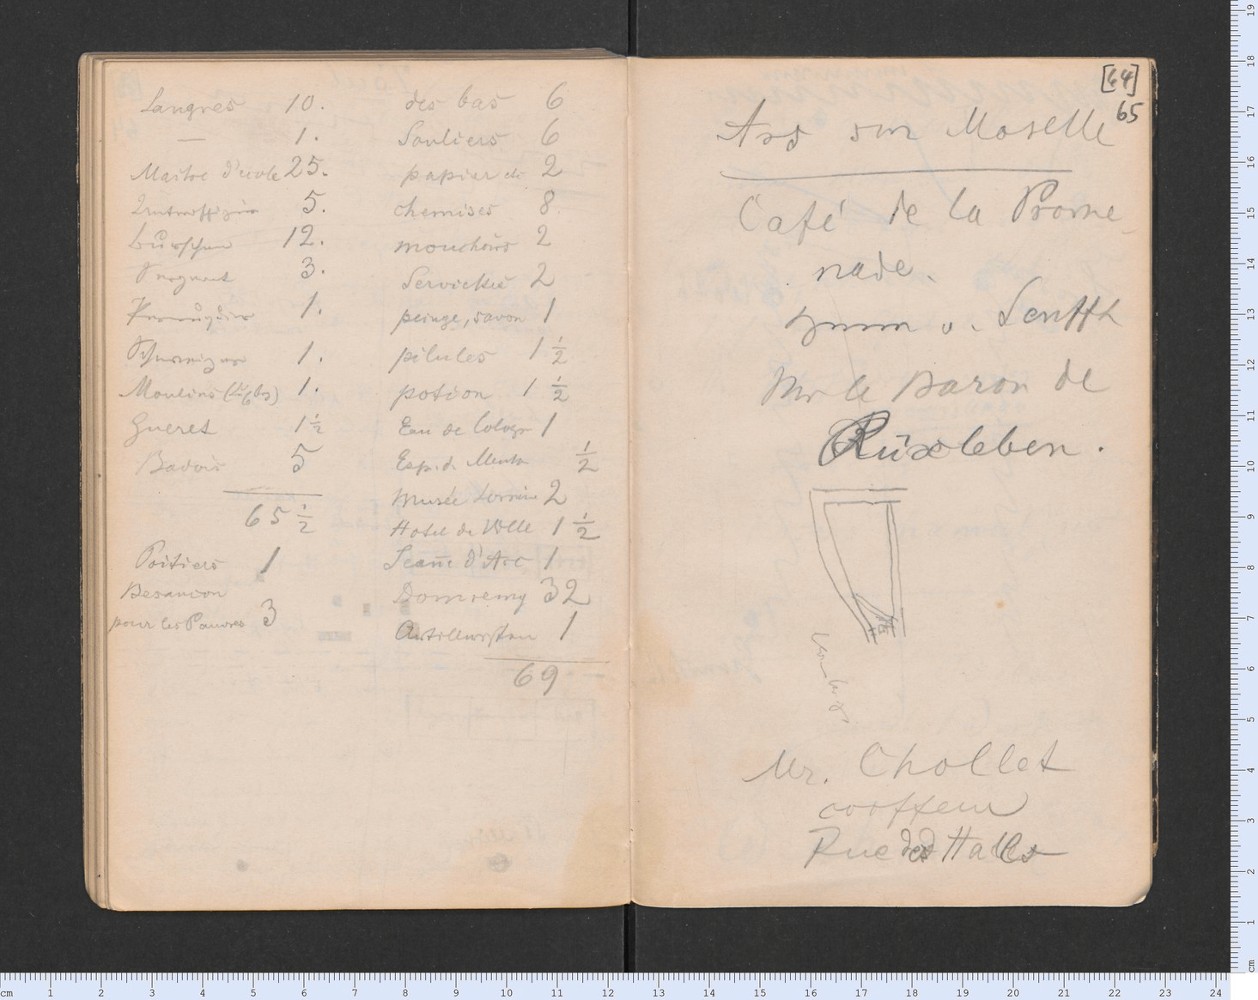 Langres 10.
— 1.
Maitre d'école 25.
5.
Burschen 12.
Sergeant 3.
1.
1.
Moulins 1.
Gueret 1 1/2
Badois 5
65 1/2
Poitiers 1
Besancon
pour les Pauvres 3
des bas 6
Souliers 6
papier etc 2
chemises 8.
mouchoirs 2
Serviettes 2
peinge, savon 1
pilules 1 1/2
potion 1 1/2
Eau de Cologn 1
Esp. d. Menth 1/2
Musée Lorrain 2
Hotel de Ville 1 1/2
Jeanne d'Arc 1
Domremy 32
Artilleristen 1
69
[64]
65
Ars sur Moselle
Café de la Prome-
nade.
v. Senfft
Mr le Baron de
Rüxleben.
Mr. Chollet
coiffeur
Rue des Halles